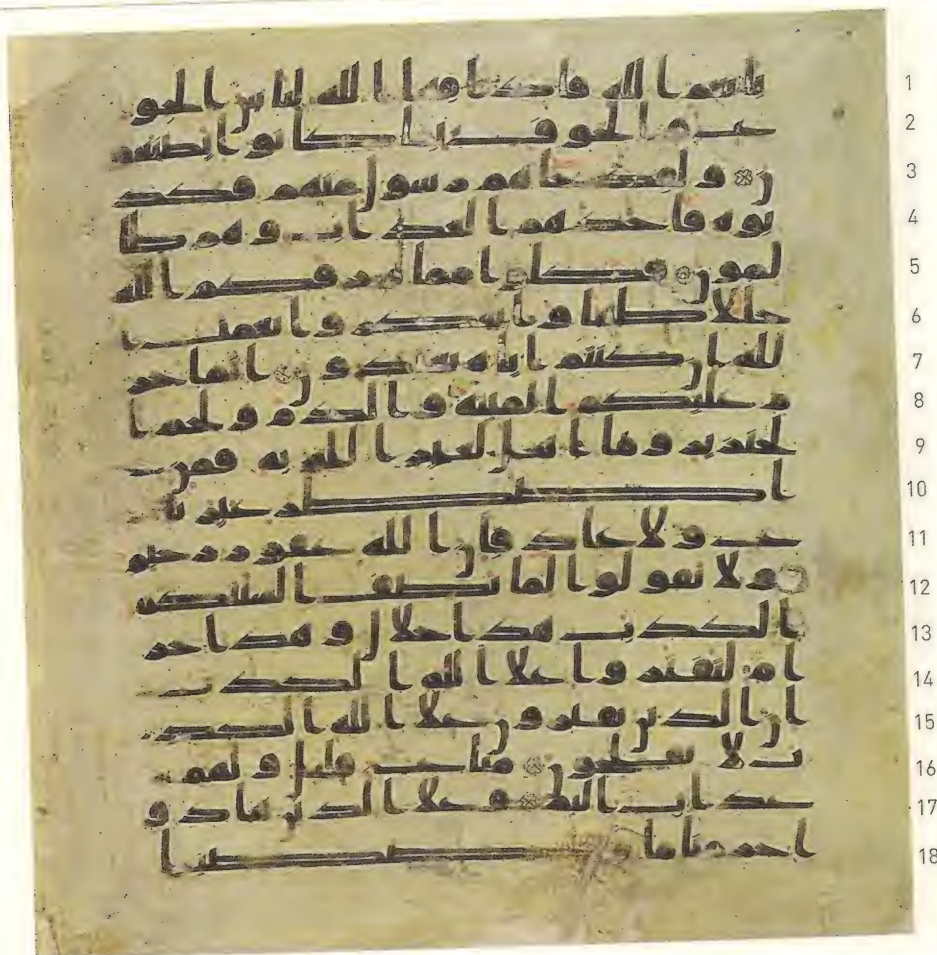 بانعم الله فاذاقها الله لباس الجو 1
ع والخوف بما كانوا يصنعو 2
ن ولقد جاهم رسول منهم فكذ 3
بوه فاخذهم العذاب وهم ظا 4
لمون فكلوا مما رزقكم الله 5
حللا طيبا واشكروا نعمت ا 6
لله ان كنتم اياه تعبدون انما حر 7
م عليكم الميتة والدم ولحم ا 8
لخنزير وما اهل لغير الله به فمن 9
اضطر غير با 10
غ ولا عاد فان الله غفور رحيم 11
ولا تقولوا لما تصف السنتكم 12
الكذب هذا حلل وهذا حر 13
ام لتفتروا على الله الكذب 14
ان الذين يفترون على الله الكذ 15
ب لا يفلحون متاع قليل ولهم 16
عذاب اليم وعلى الذين هادو 17
ا حرمنا ما قصصنا 18